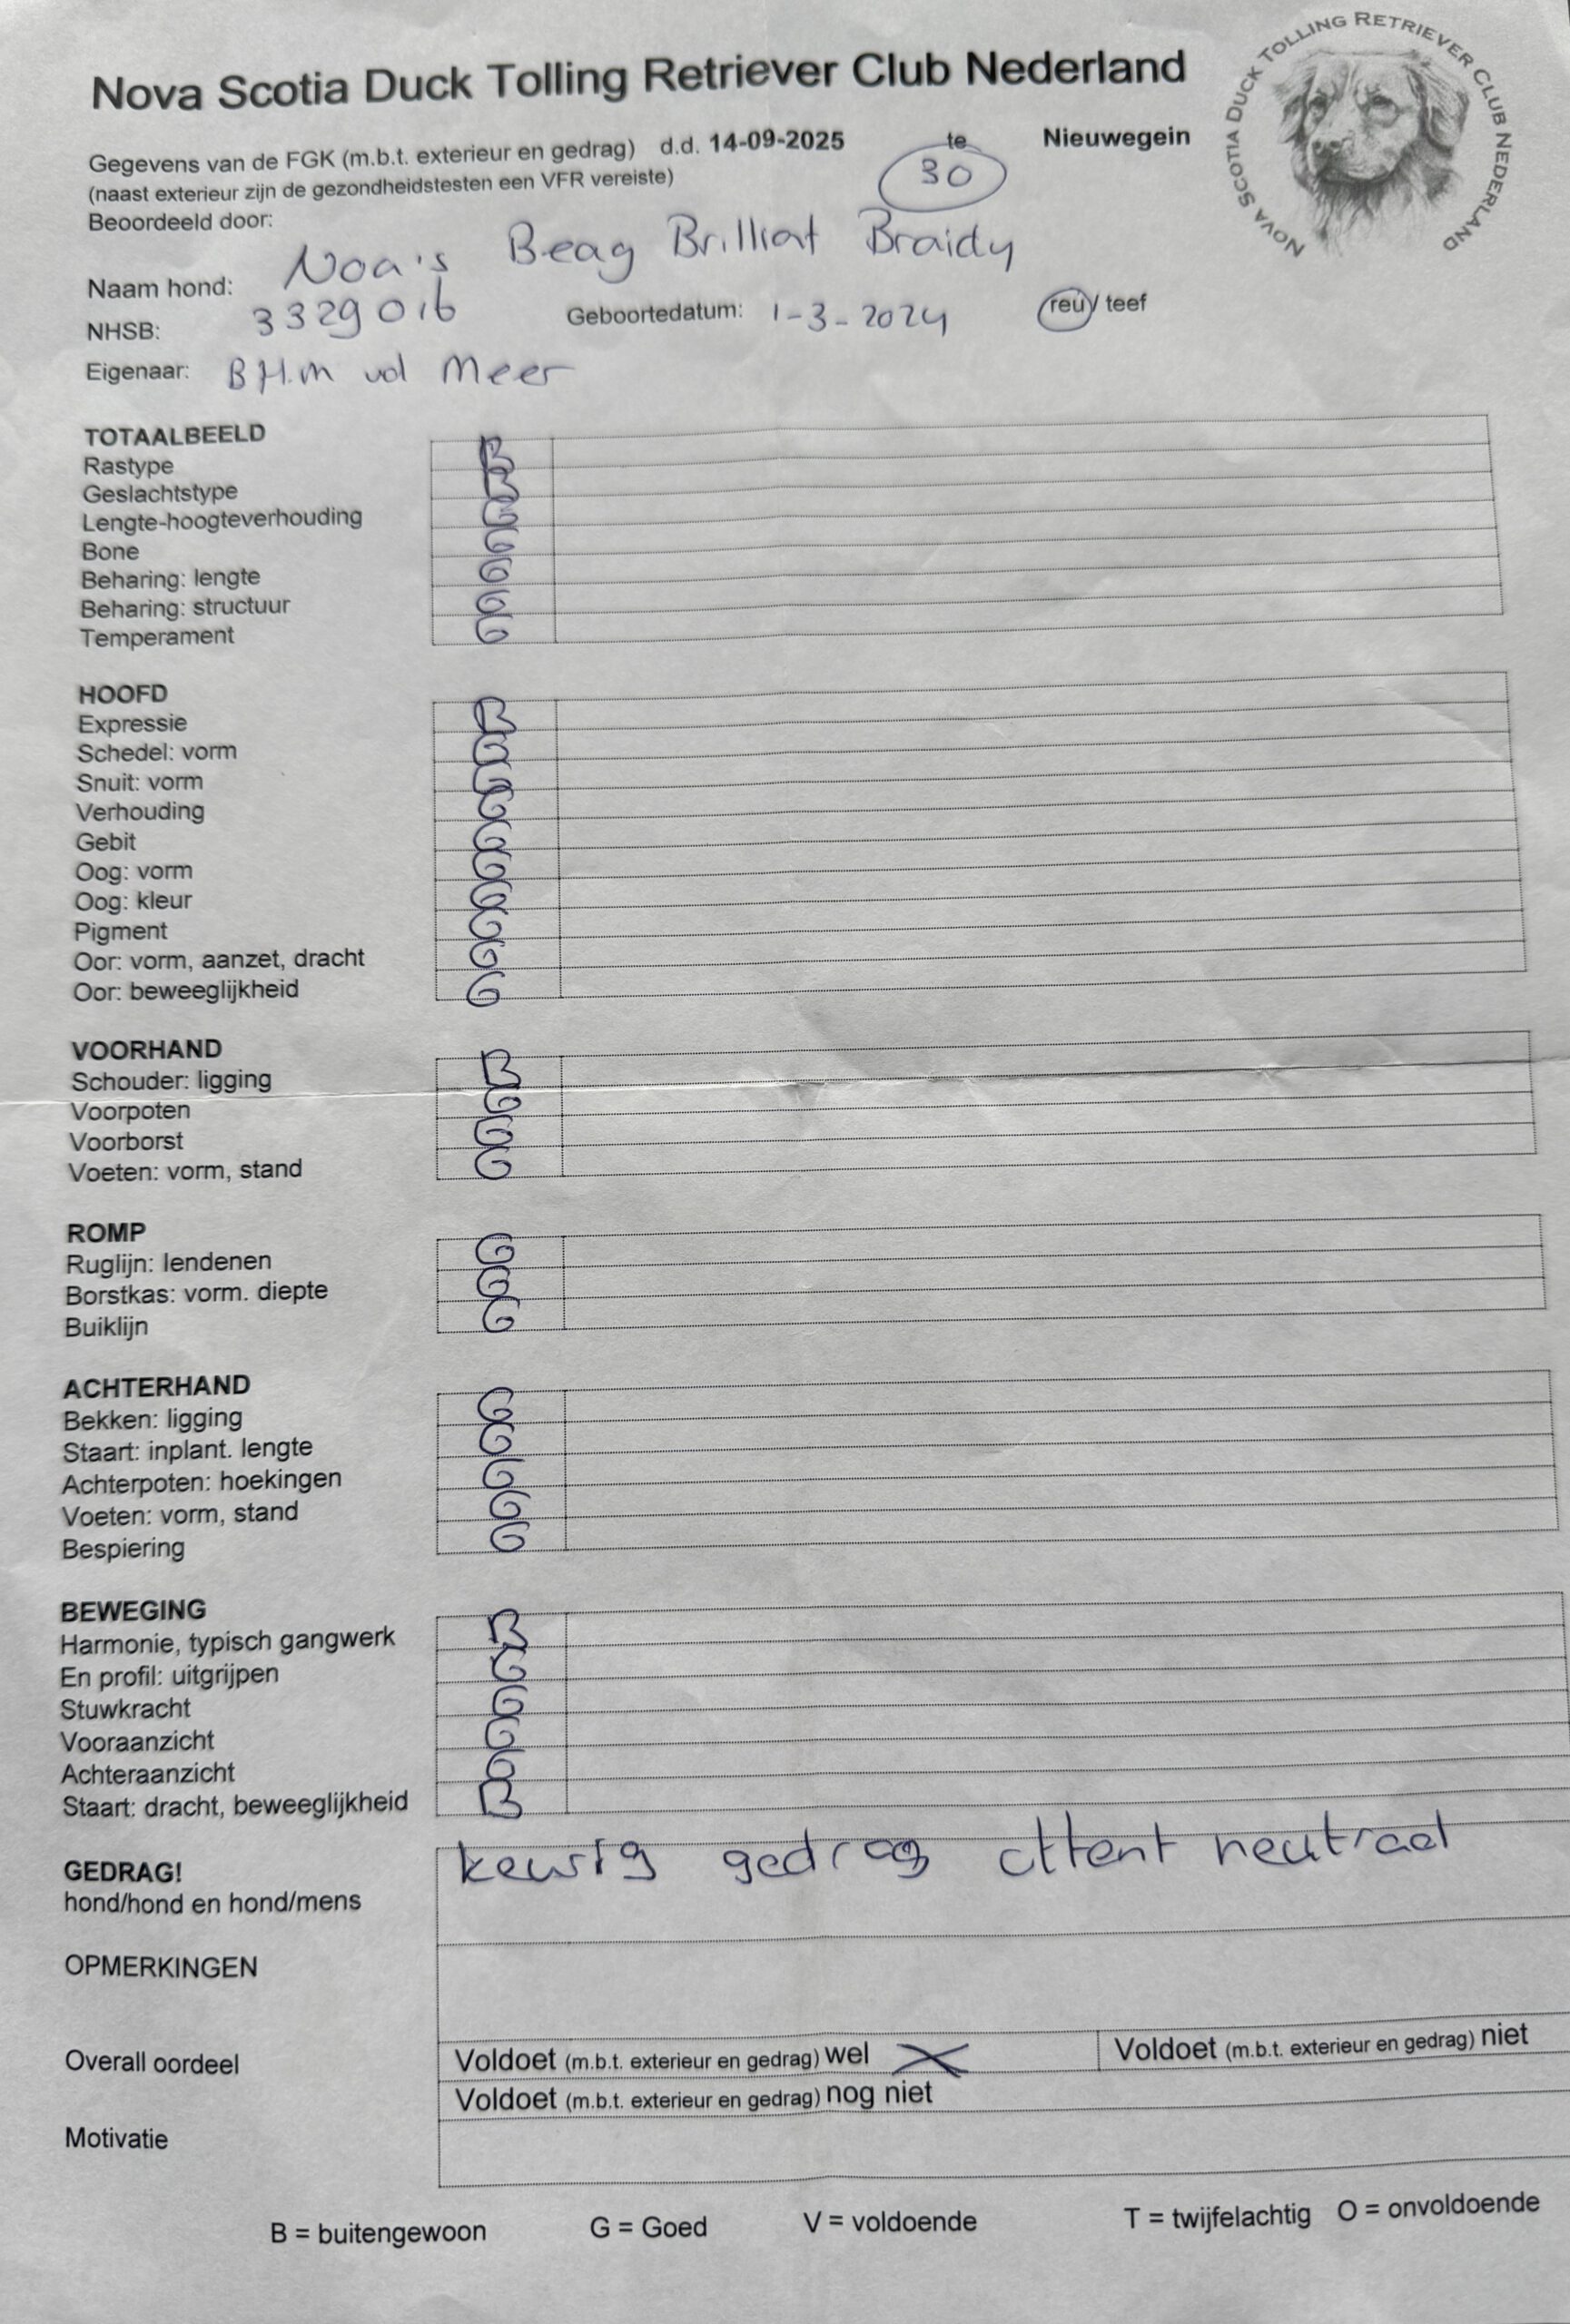 Nova Scotia Duck Tolling Retriever Club Nederland
NOVA SCOTIA DUCK TOLLING RETRIEVER CLUB NEDERLAND
Gegevens van de FGK (m.b.t. exterieur en gedrag) d.d. 14-09-2025 te Nieuwegein
(naast exterieur zijn de gezondheidstesten een VFR vereiste) 30
Beoordeeld door:
Naam hond: Noa's Beag Brilliat Braidy
NHSB: 3329016 Geboortedatum: 1-3-2024 reu / teef
Eigenaar: B H.M vd Meer
TOTAALBEELD
Rastype B
Geslachtstype B
Lengte-hoogteverhouding G
Bone G
Beharing: lengte G
Beharing: structuur G
Temperament G
HOOFD
Expressie B
Schedel: vorm G
Snuit: vorm G
Verhouding G
Gebit G
Oog: vorm G
Oog: kleur G
Pigment G
Oor: vorm, aanzet, dracht G
Oor: beweeglijkheid G
VOORHAND
Schouder: ligging B
Voorpoten G
Voorborst G
Voeten: vorm, stand G
ROMP
Ruglijn: lendenen G
Borstkas: vorm. diepte G
Buiklijn G
ACHTERHAND
Bekken: ligging G
Staart: inplant. lengte G
Achterpoten: hoekingen G
Voeten: vorm, stand G
Bespiering G
BEWEGING
Harmonie, typisch gangwerk B
En profil: uitgrijpen G
Stuwkracht G
Vooraanzicht G
Achteraanzicht G
Staart: dracht, beweeglijkheid B
GEDRAG! keurig gedrag attent neutraal
hond/hond en hond/mens
OPMERKINGEN
Overall oordeel Voldoet (m.b.t. exterieur en gedrag) wel X Voldoet (m.b.t. exterieur en gedrag) niet
Voldoet (m.b.t. exterieur en gedrag) nog niet
Motivatie
B = buitengewoon G = Goed V = voldoende T = twijfelachtig O = onvoldoende